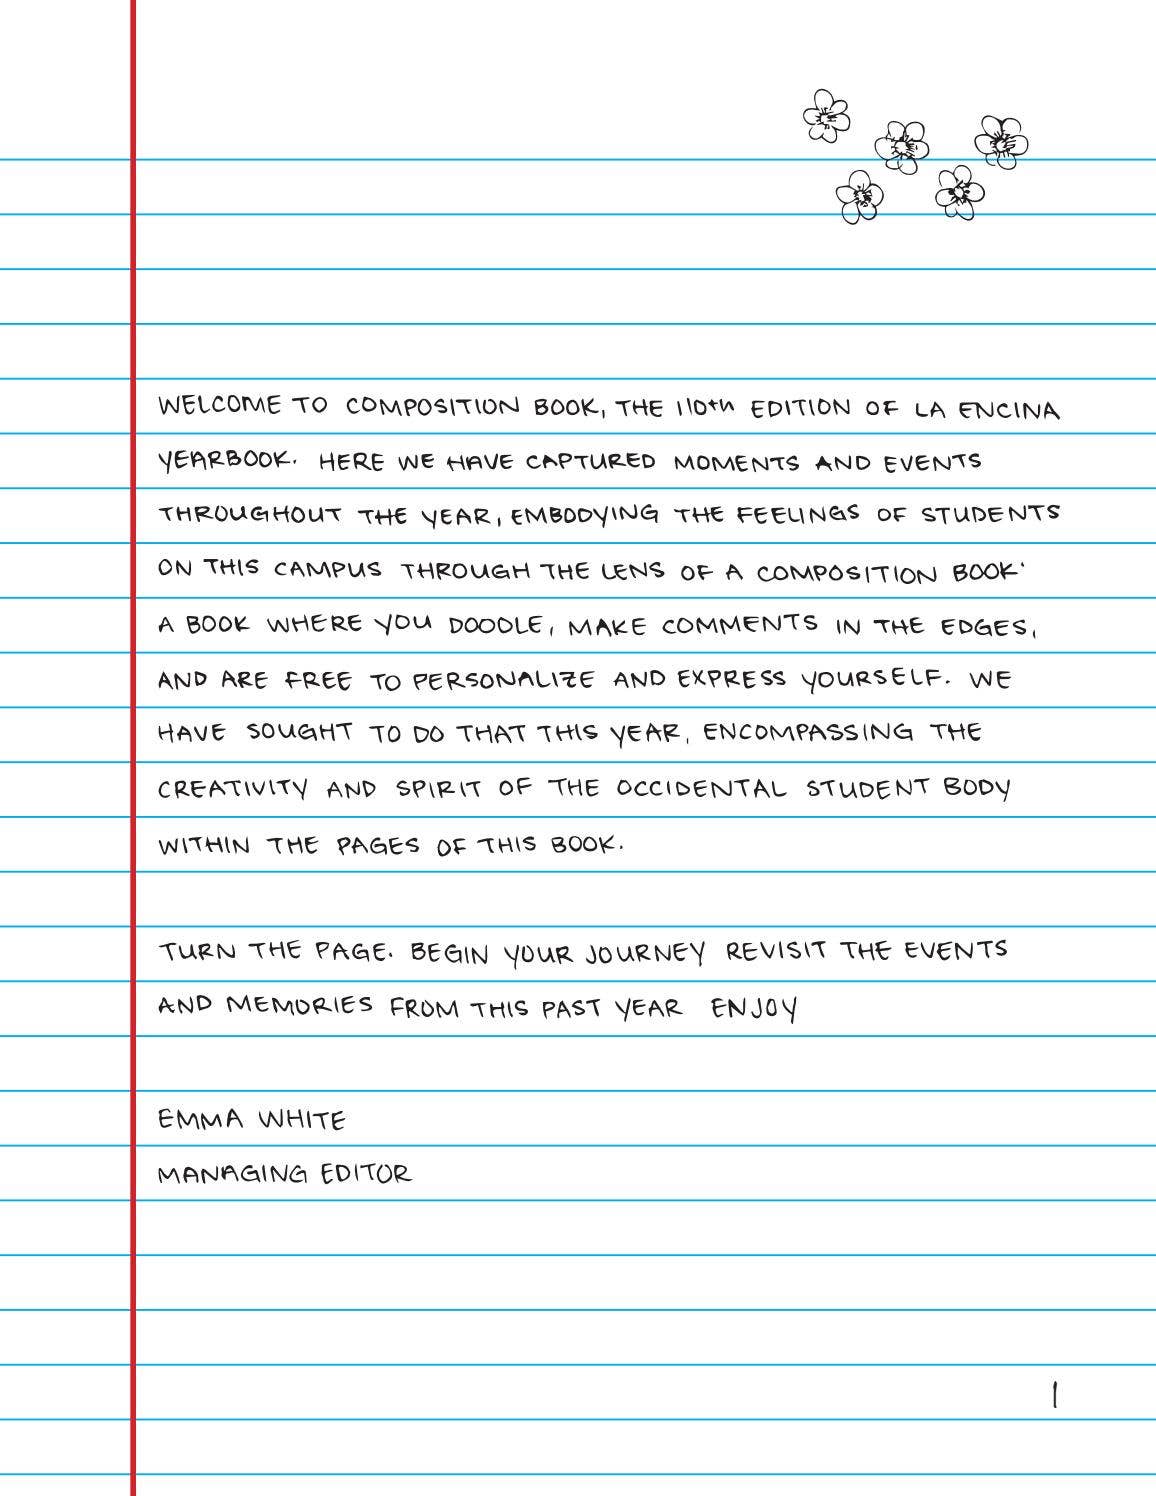 WELCOME TO COMPOSITION BOOK, THE 110th EDITION OF LA ENCINA
YEARBOOK. HERE WE HAVE CAPTURED MOMENTS AND EVENTS
THROUGHOUT THE YEAR, EMBODYING THE FEELINGS OF STUDENTS
ON THIS CAMPUS THROUGH THE LENS OF A COMPOSITION BOOK'
A BOOK WHERE YOU DOODLE, MAKE COMMENTS IN THE EDGES,
AND ARE FREE TO PERSONALIZE AND EXPRESS YOURSELF. WE
HAVE SOUGHT TO DO THAT THIS YEAR, ENCOMPASSING THE
CREATIVITY AND SPIRIT OF THE OCCIDENTAL STUDENT BODY
WITHIN THE PAGES OF THIS BOOK.
TURN THE PAGE. BEGIN YOUR JOURNEY REVISIT THE EVENTS
AND MEMORIES FROM THIS PAST YEAR ENJOY
EMMA WHITE
MANAGING EDITOR
1